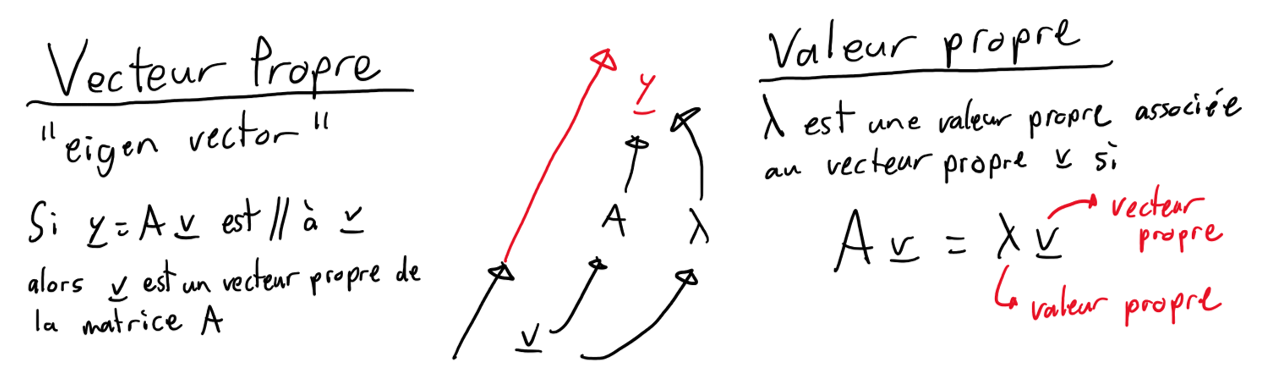 Vecteur Propre
"eigen vector"
Si y = A v est // à v
alors v est un vecteur propre de
la matrice A
y
A
λ
v
Valeur propre
λ est une valeur propre associée
au vecteur propre v si
A v = λ v
vecteur
propre
valeur propre